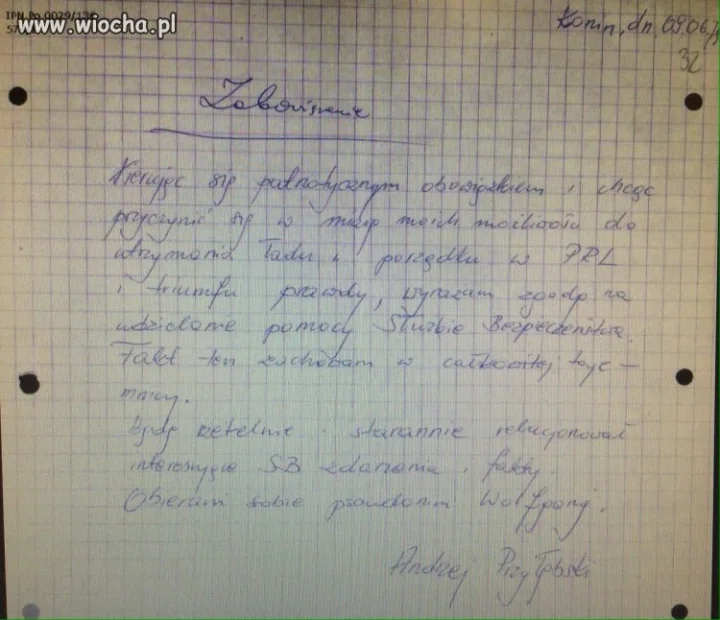 IPN Po 0029/
www.wiocha.pl
Konin, dn. 09.06.
32
Zobowiązanie
Kierując się patriotycznym obowiązkiem i chcąc
przyczynić się w miarę moich możliwości do
utrzymania ładu i porządku w PRL
i triumfu prawdy, wyrażam zgodę na
udzielanie pomocy Służbie Bezpieczeństwa.
Fakt ten zachowam w całkowitej taje-
mnicy.
Będę rzetelnie i starannie relacjonował
interesujące SB zdarzenia i fakty.
Obieram sobie pseudonim Wolfgang.
Andrzej Przyłębski